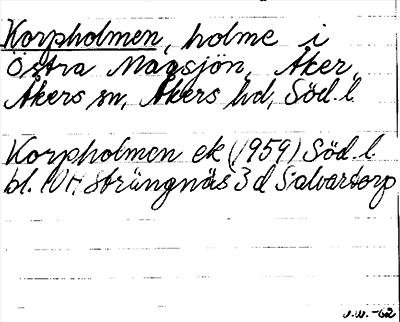 Korpholmen, holme i
Östra Magsjön, Åker,
Åkers sn, Åkers hd, Söd. l.
Korpholmen ek (1959) Söd. l.
bl. 10H Strängnäs 3 d Salvartorp
J.W. -62